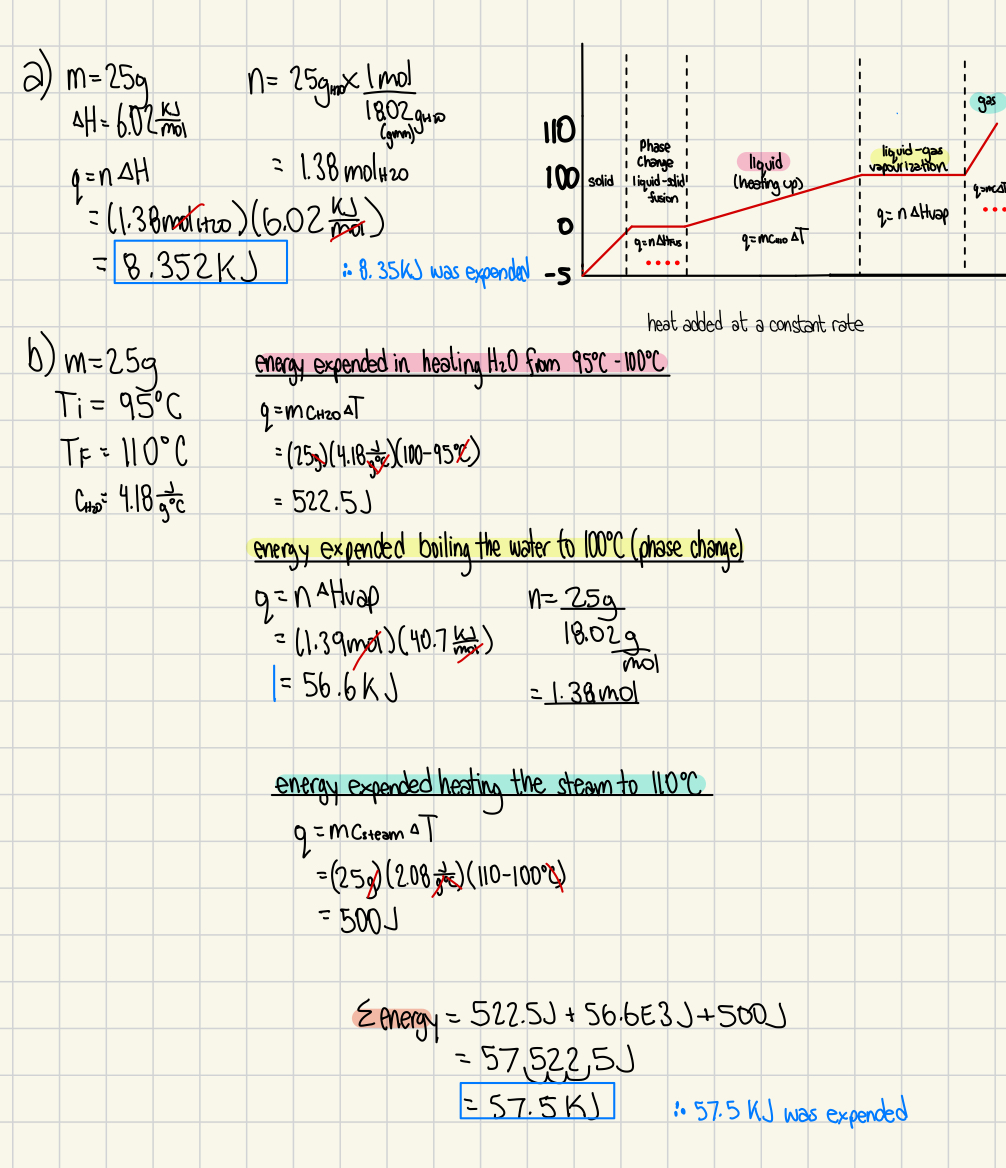 a) m=25g
ΔH=6.02 KJ/mol
q=nΔH
=(1.38molH20)(6.02 KJ/mol)
= 8.352KJ
n= 25gH20 x 1mol / 18.02gH20
(gmm)
= 1.38molH20
∴ 8.35KJ was expended
110
100
0
-5
solid
Phase
Change
liquid-solid
-fusion
q=nΔHfus
liquid
(heating up)
q=mcH20ΔT
liquid-gas
vapourization
q=nΔHvap
gas
q=mcΔT
heat added at a constant rate
b) m=25g
Ti = 95°C
TF = 110°C
CH20= 4.18 J/g°C
energy expended in heating H2O from 95°C-100°C
q=mcH20ΔT
=(25g)(4.18 J/g°C)(100-95°C)
= 522.5J
energy expended boiling the water to 100°C (phase change)
q=nΔHvap
=(1.39mol)(40.7 KJ/mol)
= 56.6KJ
n= 25g / 18.02g/mol
= 1.38mol
energy expended heating the steam to 110°C
q=mcsteamΔT
=(25g)(2.08 J/g°C)(110-100°C)
= 500J
Σenergy = 522.5J + 56.6E3J+500J
= 57,522,5J
= 57.5KJ
∴ 57.5 KJ was expended